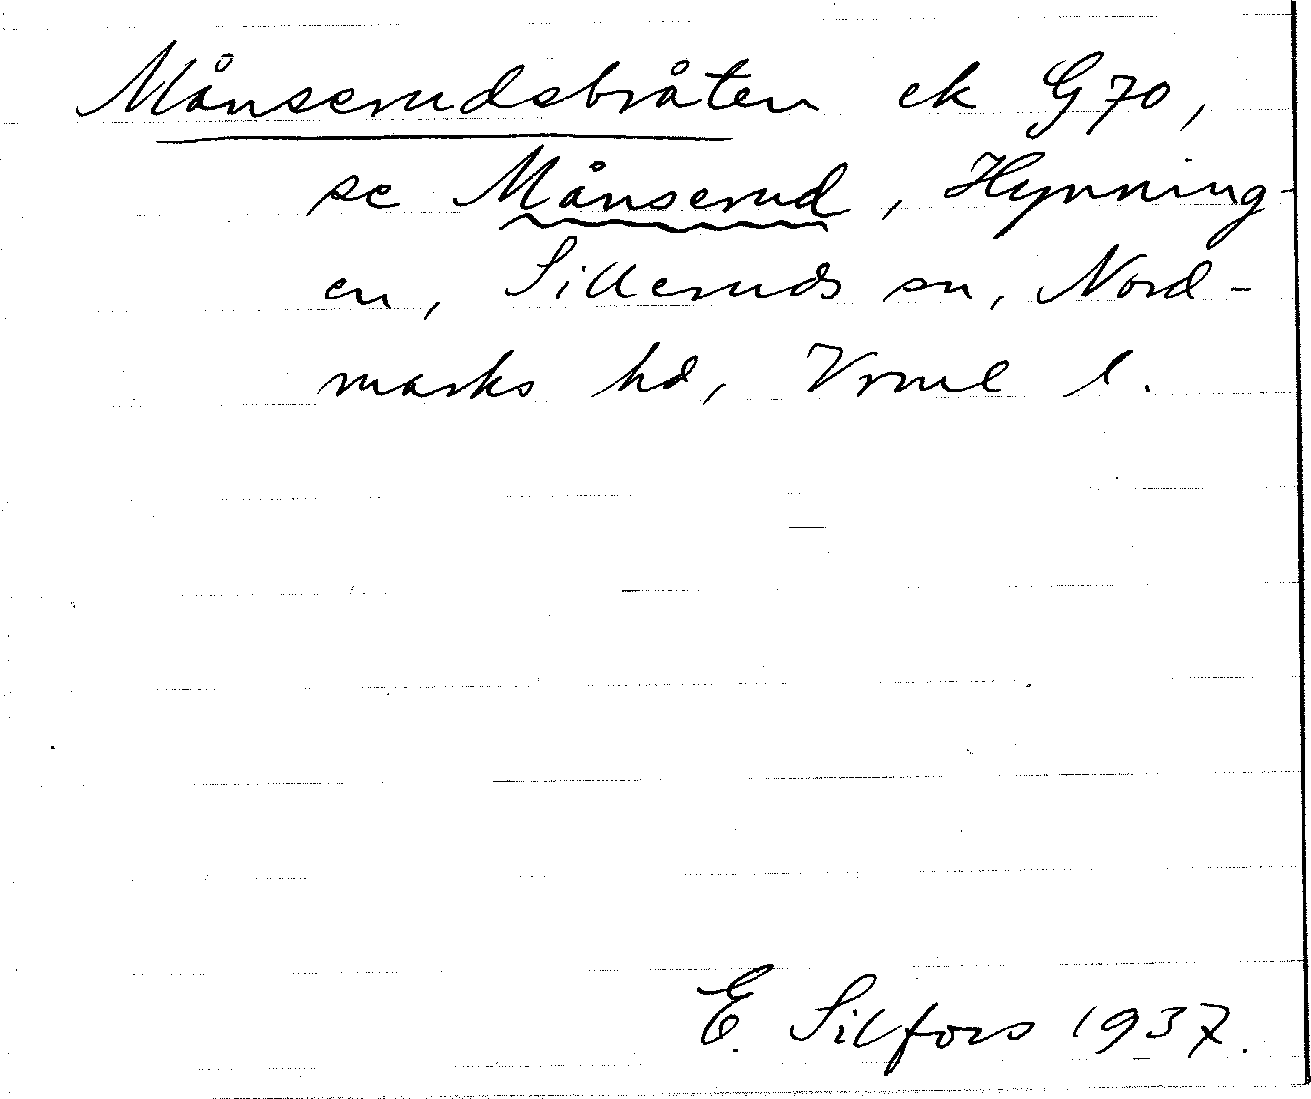 Månserudsbråten ek G70,
se Månserud, Hynning-
en, Silleruds sn, Nord-
marks hd, Vrml l.
E. Silfors 1937.